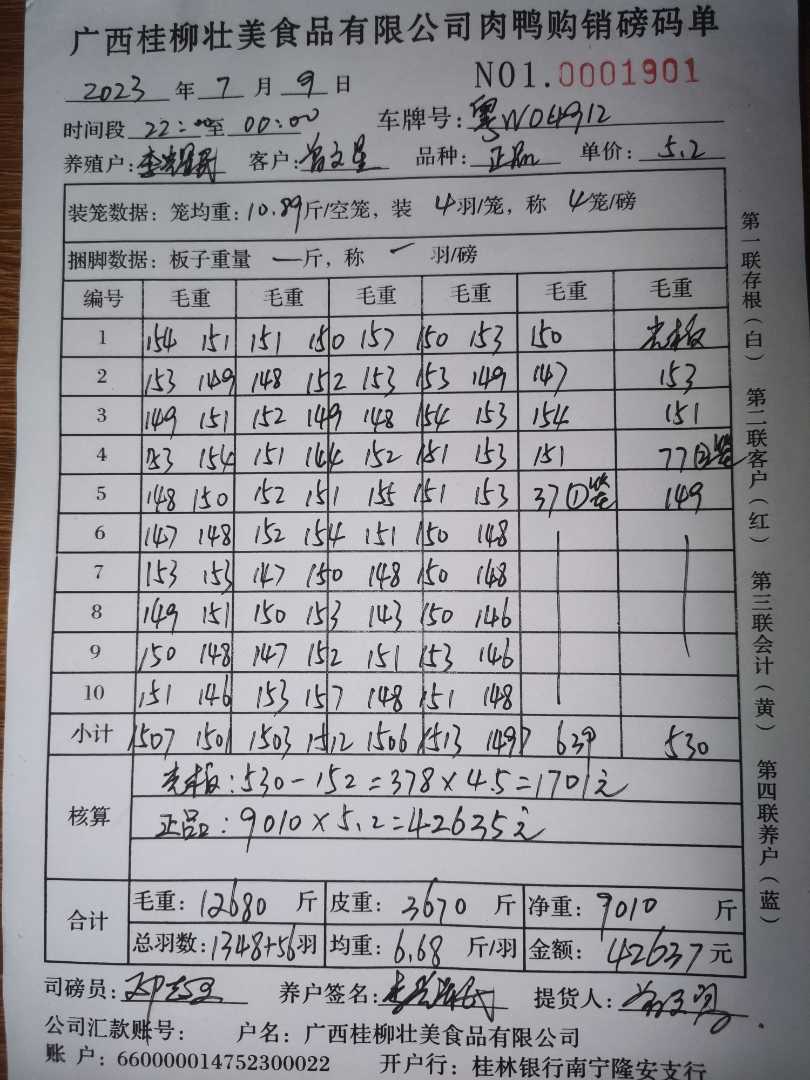 广西桂柳壮美食品有限公司肉鸭购销磅码单
2023 年 7 月 9 日 NO1.0001901
时间段 22:00 至 00:00 车牌号:粤W04912
养殖户: 客户:曾文星 品种: 正品 单价: 5.2
装笼数据:笼均重:10.89斤/空笼,装 4羽/笼,称 4笼/磅
捆脚数据:板子重量 一斤,称 一 羽/磅
编号 毛重 毛重 毛重 毛重 毛重 毛重
1 154 151 151 150 157 150 153 150
2 153 149 148 152 153 153 149 147 153
3 149 151 152 149 148 154 153 154 151
4 153 154 151 144 152 151 153 151 77②
5 148 150 152 151 155 151 153 37① 149
6 147 148 152 154 151 150 148
7 153 153 147 150 148 150 148
8 149 151 150 153 143 150 146
9 150 148 147 152 151 153 146
10 151 146 153 157 148 151 148
小计 1507 1501 1503 1512 1506 1513 1497 639 530
核算
:530-152=378×4.5=1701元
正品:9010×5.2=42635元
合计
毛重:12680 斤 皮重: 3670 斤 净重: 9010 斤
总羽数:1348+56羽 均重: 6.68 斤/羽 金额: 42637 元
司磅员: 养户签名: 提货人:
公司汇款账号: 户名:广西桂柳壮美食品有限公司
账 户:660000014752300022 开户行:桂林银行南宁隆安支行
第一联存根(白) 第二联客户(红) 第三联会计(黄) 第四联养户(蓝)